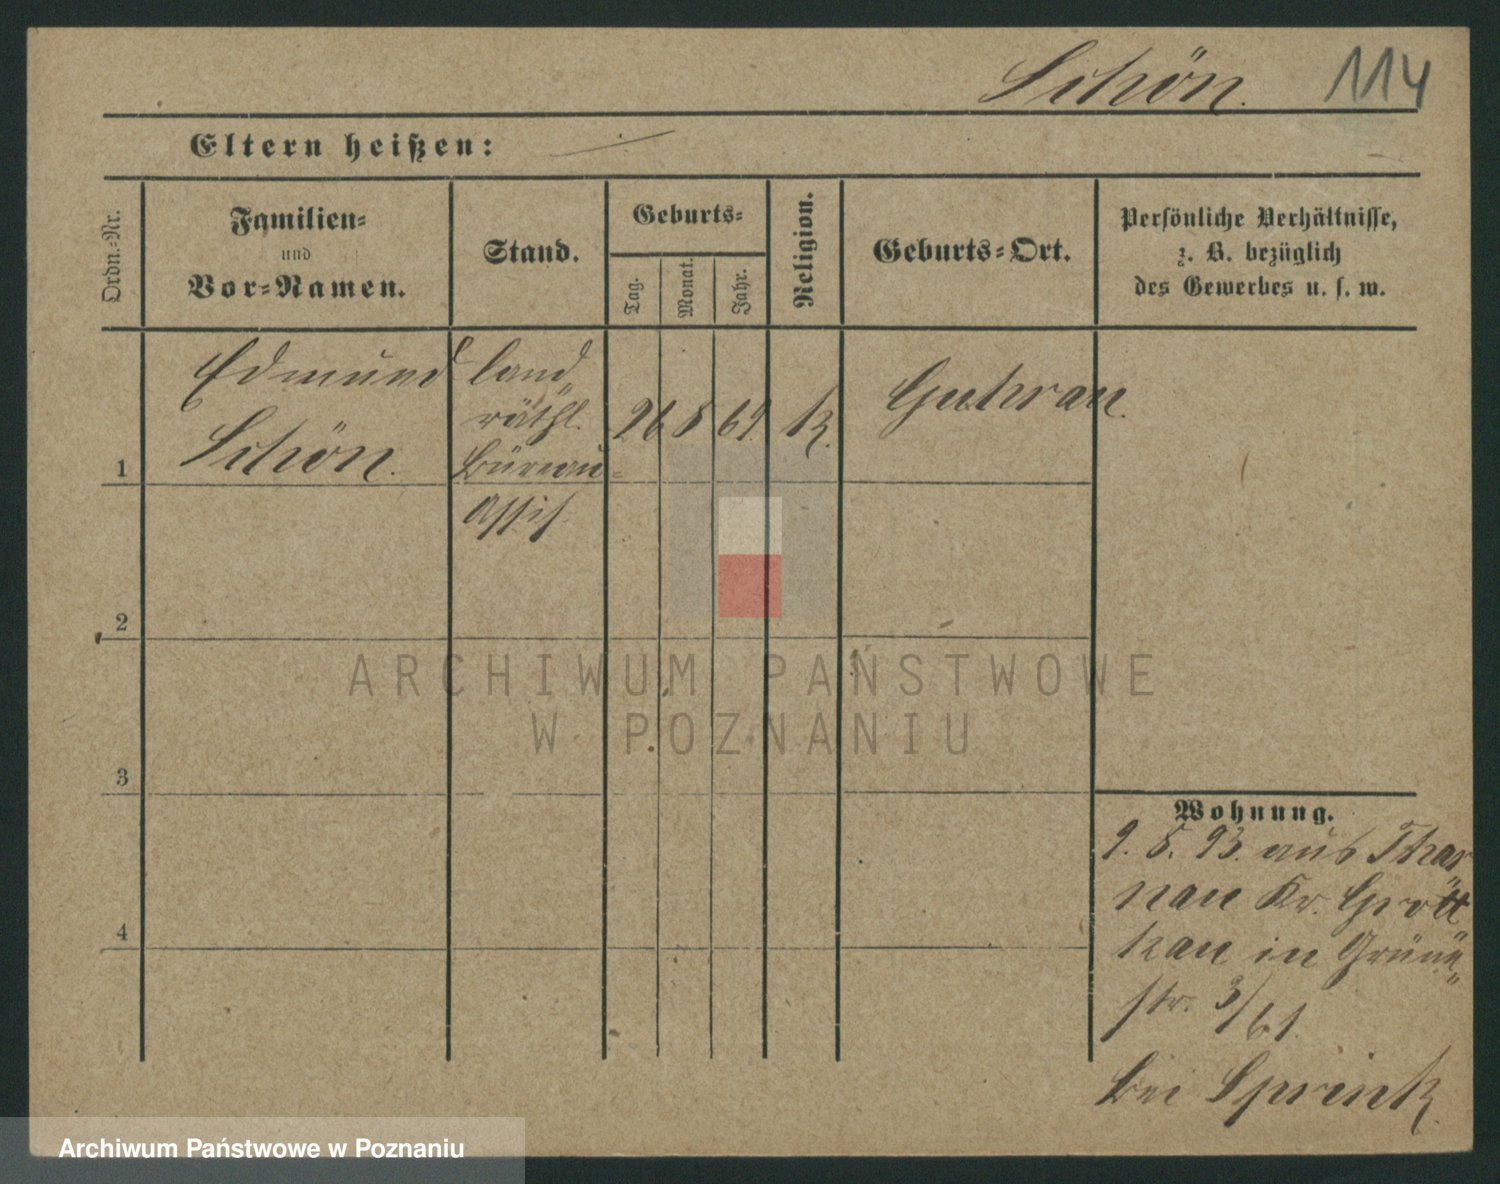 Schön. 114
Eltern heißen:
Ordn.-Nr.
Familien-
und
Vor-Namen.
Stand.
Geburts-
Tag.
Monat.
Jahr.
Religion.
Geburts-Ort.
Persönliche Verhältnisse,
z. B. bezüglich
des Gewerbes u. s. w.
1
Edmund
Schön.
Land
räthl.
Büreau-
Assis.
26 8 69. K. Guhrau.
2
3
4
Wohnung.
9. 5. 93. aus Thar
nau Kr. Grott
kau in Grün
str. 3/61.
bei Sprink
ARCHIWUM PAŃSTWOWE
W POZNANIU
Archiwum Państwowe w Poznaniu